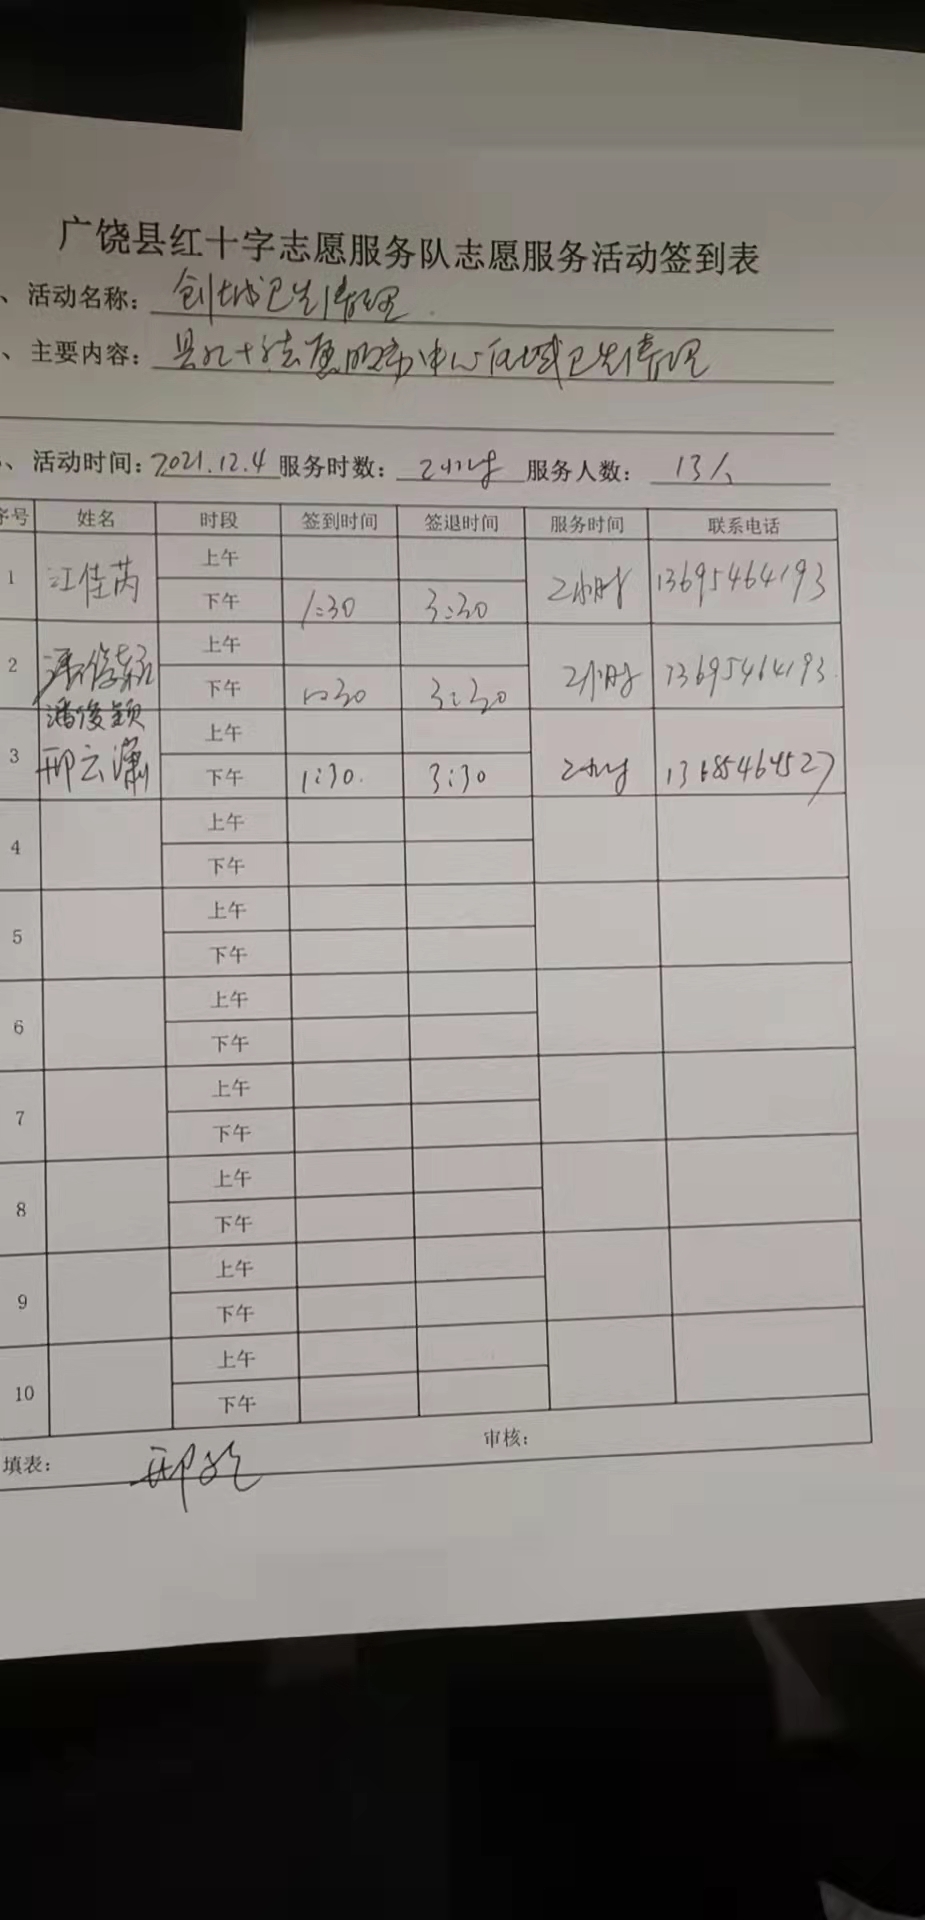 广饶县红十字志愿服务队志愿服务活动签到表
、活动名称：创城卫生清理
、主要内容：县红十字志愿服务中心区域卫生清理
、活动时间：2021.12.4 服务时数：2小时 服务人数：13人
序号 姓名 时段 签到时间 签退时间 服务时间 联系电话
1 江佳芮 上午 2小时 13695464193
下午 1:30 3:30
2 上午 2小时 13695464193
下午 1:30 3:30
潘俊颖
3 邢云潇 上午 2小时 13685464527
下午 1:30. 3:30
4 上午
下午
5 上午
下午
6 上午
下午
7 上午
下午
8 上午
下午
9 上午
下午
10 上午
下午
填表： 审核：